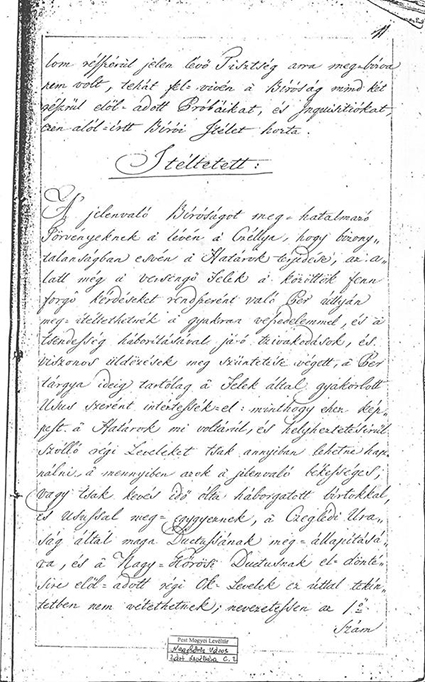 lom részérül jelen lévő Tisztség arra meg-bíva
nem volt, tehát fel-vévén à Biróság mind két
részrül elöl-adott Próbáikat, és Inquisitiókat,
ezen alól-írtt Birói Itélet hozta.
Itéltetett:
A jelenvaló Biróságot meg-hatalmazó
Törvényeknek a lévén à Czéllya, hogy bizony-
talanságban esvén à Határok terjedése, az a-
latt míg a versengő Felek à közöttök fenn
forgó kérdéseket rendszerént való Per úttyán
meg-itéltethetnék à gyakran veszedelemmel, és à
tsendesség háborításával járó tzivakodások, és
viszonos üldözések meg szüntetése végett, à Per
tárgya ideig tartólag à Felek által gyakorlott
Usus szerént intéztessék-el: minthogy ehez kép-
pest à Határok mi voltárúl, és helyheztetésérül
szólló régi Leveleket tsak annyiban lehetne hasz-
nálni, à mennyiben azok à jelenvaló békességes,
vagy tsak kevés idő ólta háborgatott birtokkal,
és Usussal meg-egygyeznek, à Czeglédi Ura-
ság által maga Ductussának meg-állapításá-
ra, és à Nagy-Kőrösi Ductusnak el-dönté-
sére elöl-adott régi Ok-Levelek ez úttal tekin-
tetben nem vétethetnek; nevezetessen az 1ő
Szám
Pest Megyei Levéltár
Nagykőrös Város